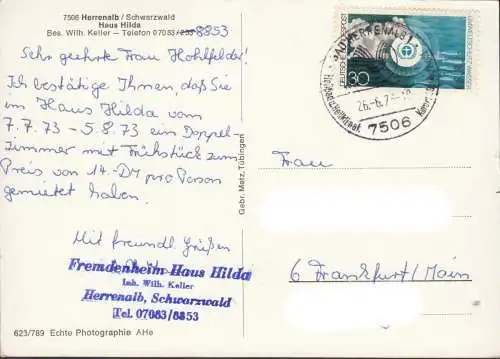 7506 Herrenalb / Schwarzwald
Haus Hilda
Bes. Wilh. Keller - Telefon 07083/253 8853
Sehr geehrte Frau Hohlfelder!
Ich bestätige Ihnen, daß Sie
im Haus Hilda vom
7.7.73 - 5.8.73 ein Doppel-
zimmer mit Frühstück zum
Preis von 14.- DM pro Person
gemietet haben.
Mit freundl. Grüßen
Fremdenheim Haus Hilda
Inh. Wilh. Keller
Herrenalb, Schwarzwald
Tel. 07083/8853
623/789 Echte Photographie AHe
Gebr. Metz, Tübingen
DEUTSCHE BUNDESPOST
30
BAD HERRENALB 1
26.-6.7
7506
Frau
6 Frankfurt/Main